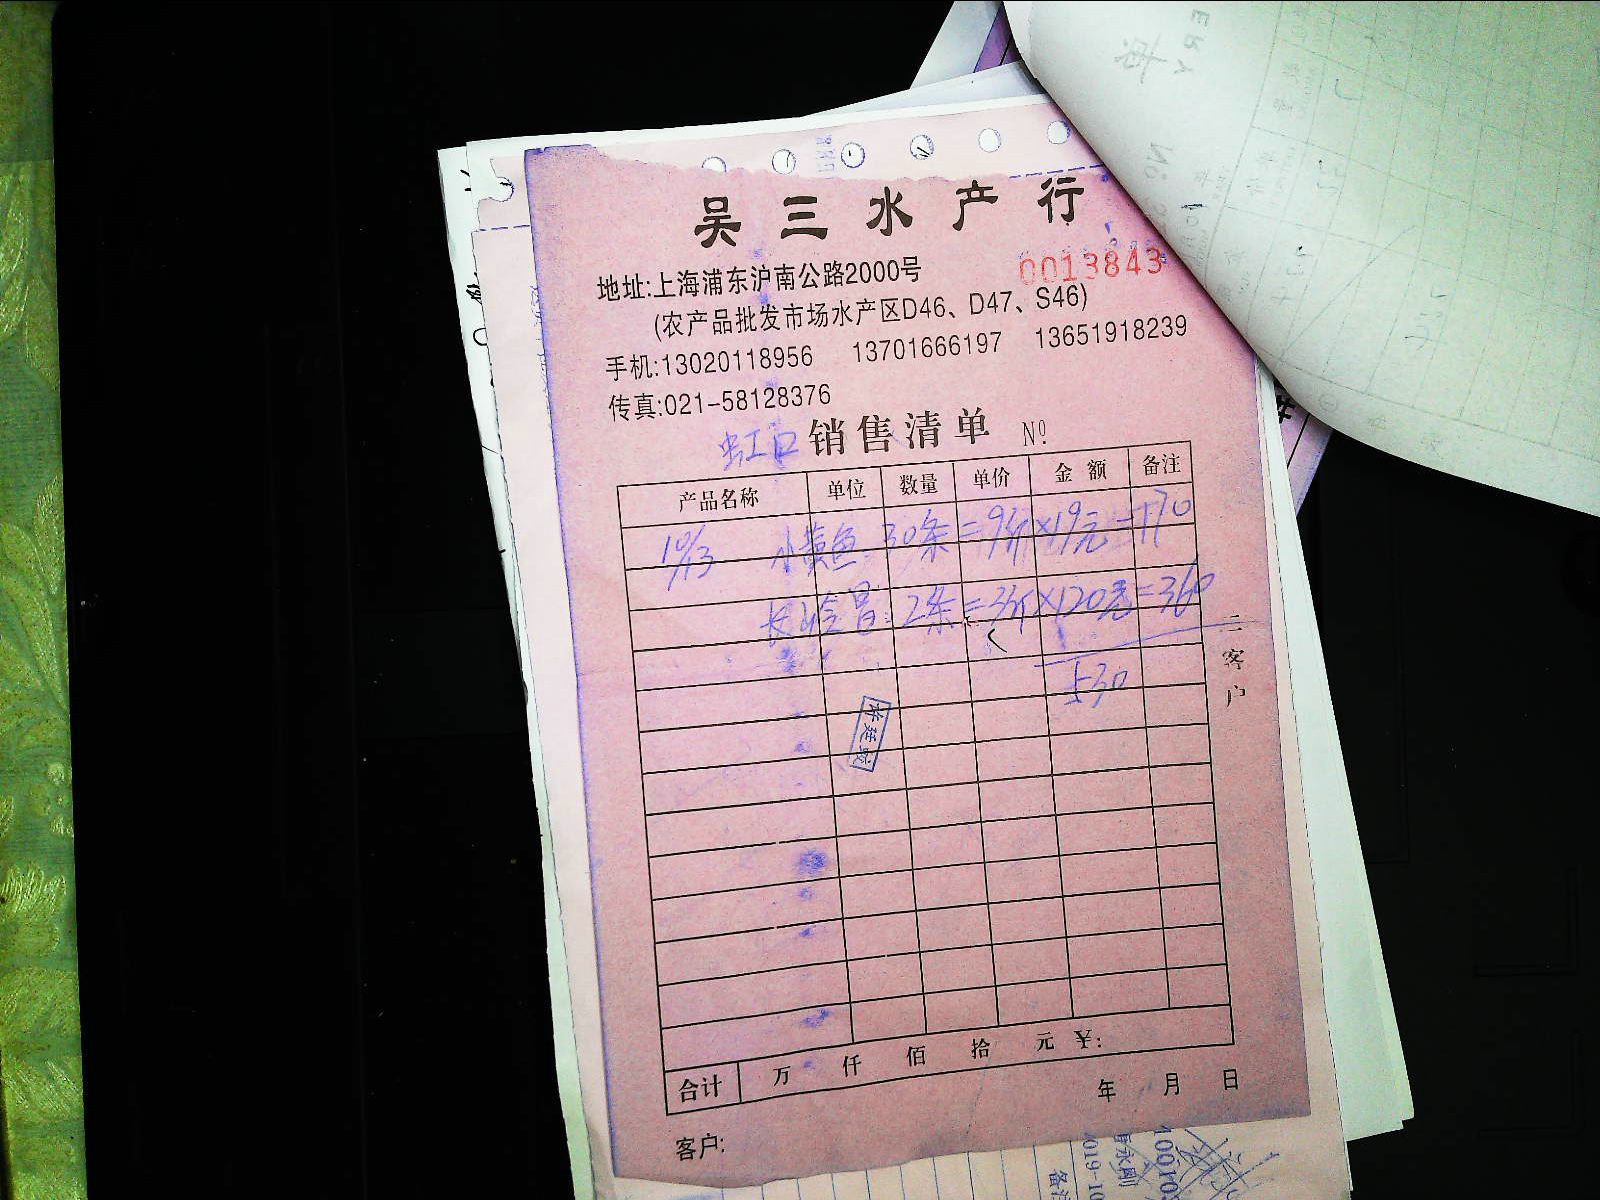 吴三水产行
0013843
地址:上海浦东沪南公路2000号
(农产品批发市场水产区D46、D47、S46)
手机:13020118956 13701666197 13651918239
传真:021-58128376
虹口 销售清单 Nº
产品名称 单位 数量 单价 金额 备注
10/13 小黄鱼: 30条=9斤×19元=170
2条=3斤×120元=360
530
二客户
合计 万 仟 佰 拾 元 ¥:
年 月 日
客户: